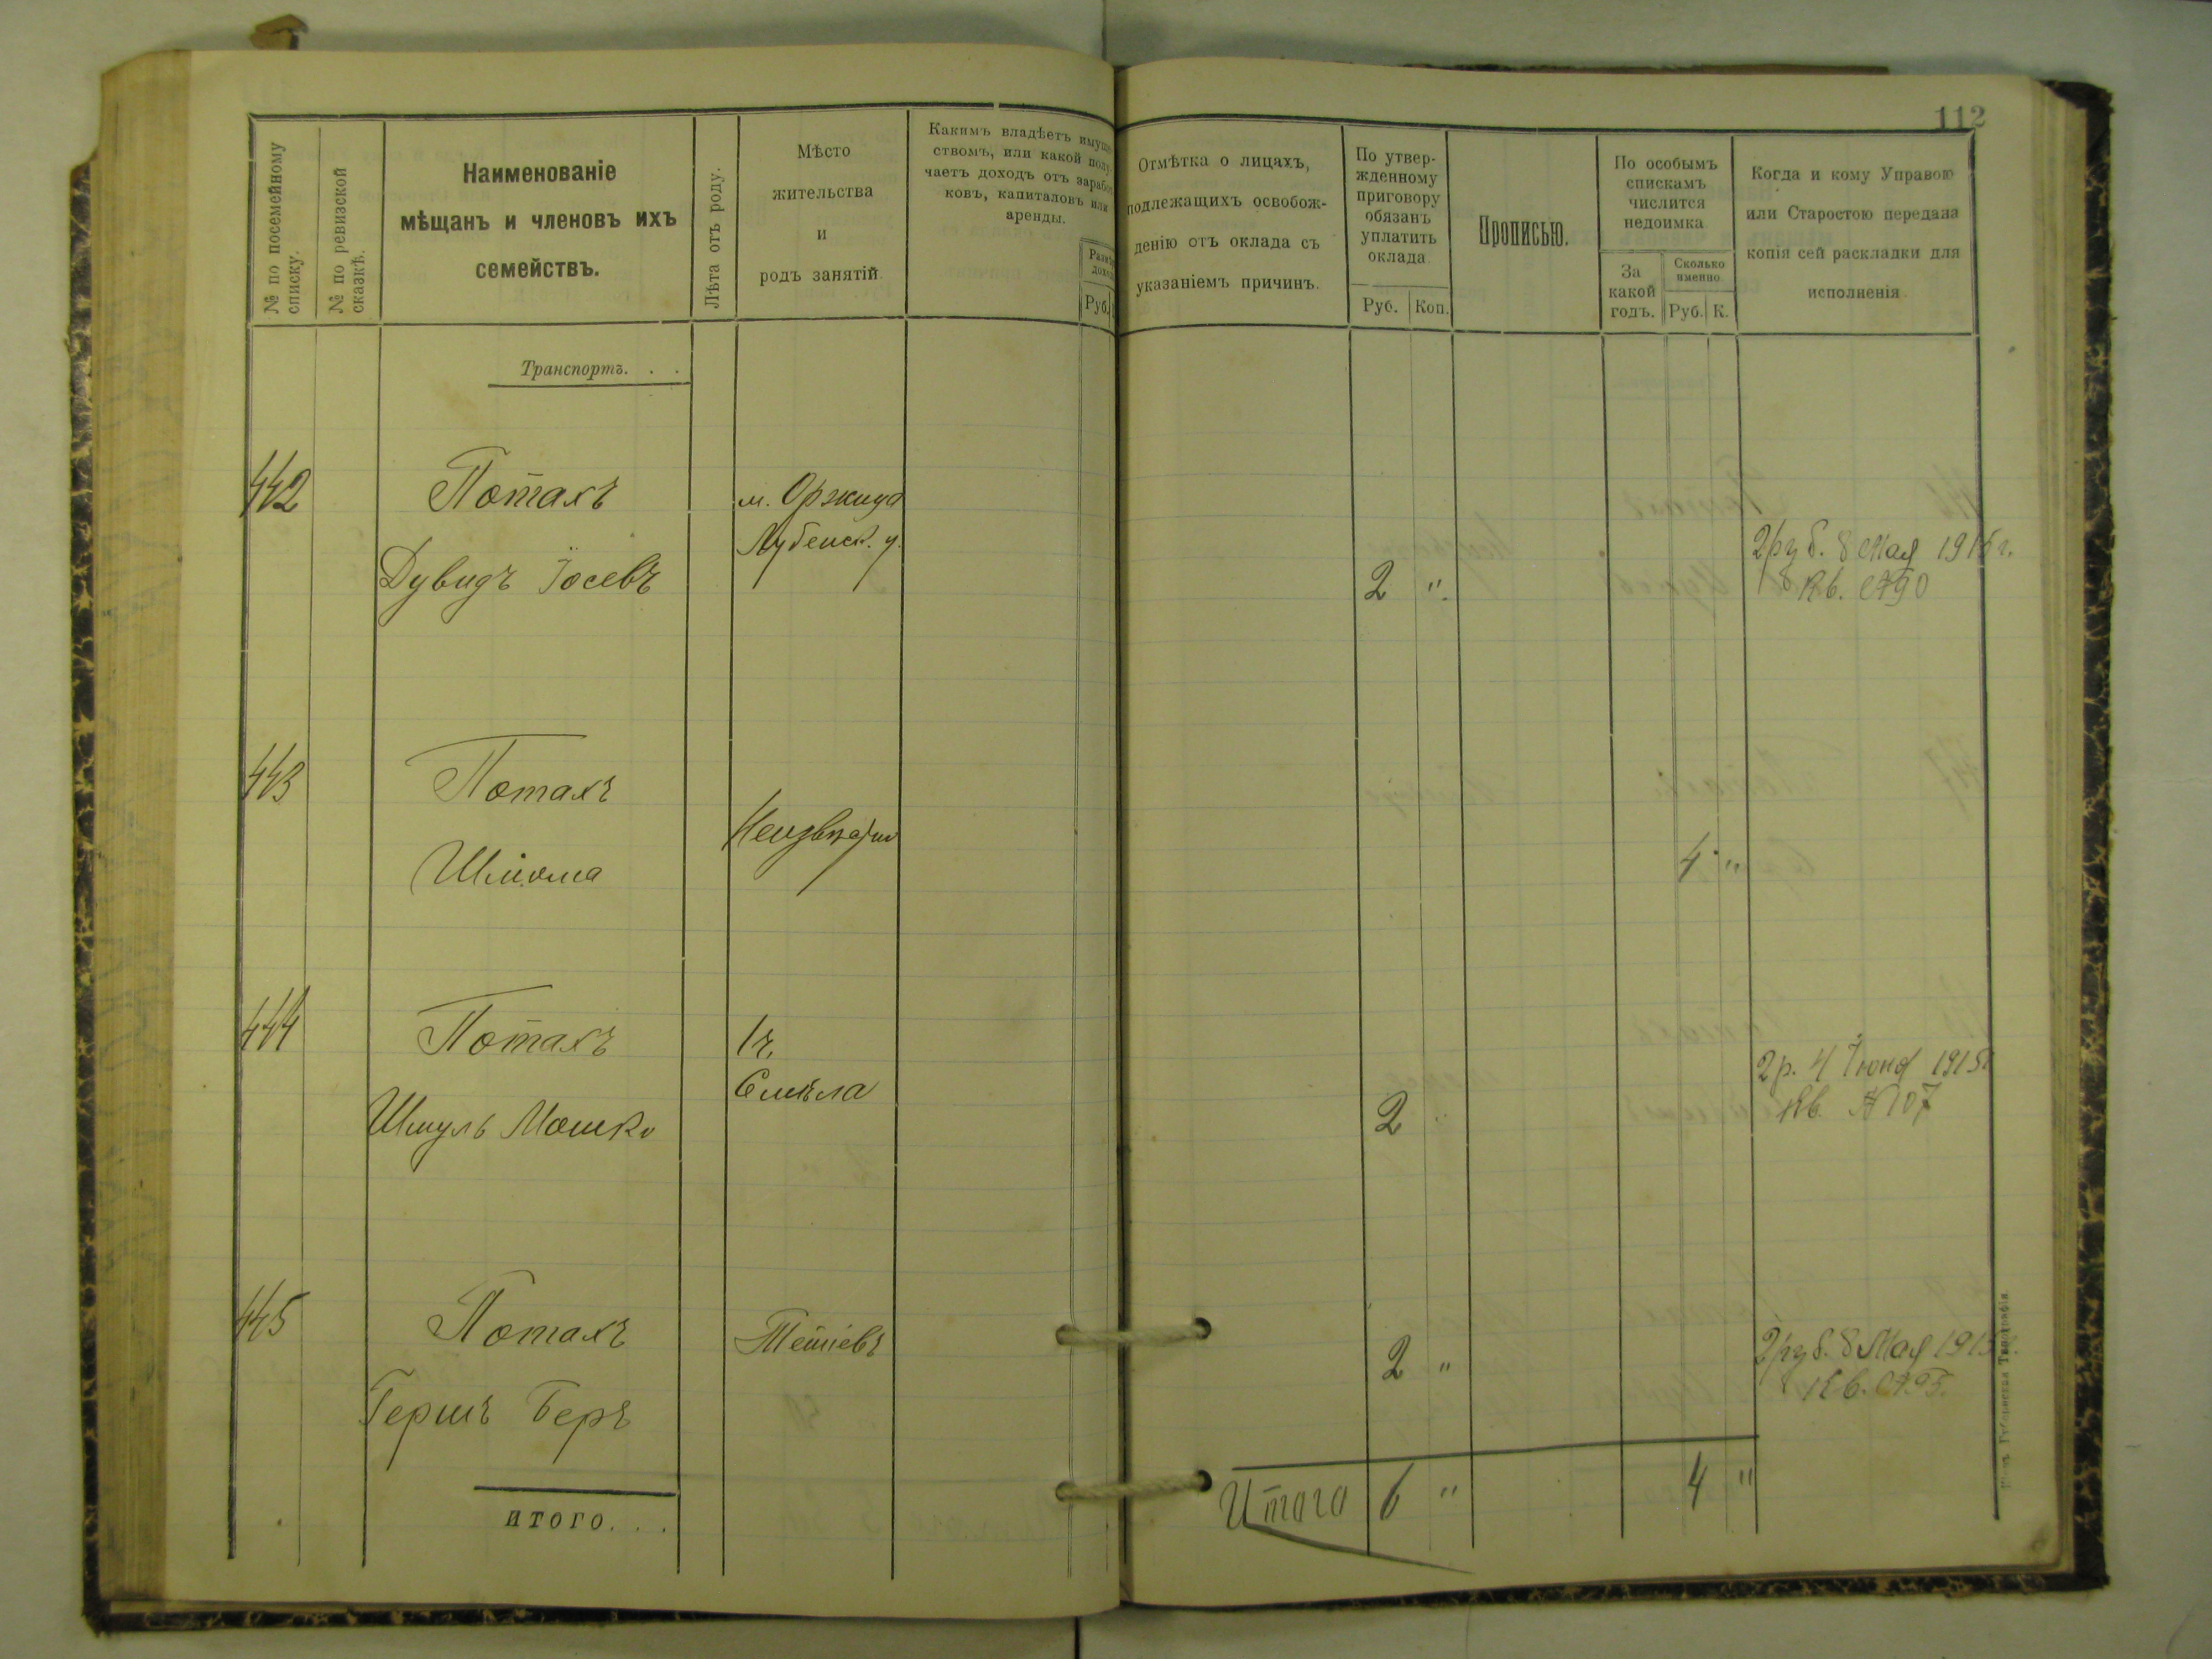 112
№ по посемейному списку.
№ по ревизской сказкѣ.
Наименованіе
мѣщанъ и членовъ ихъ
семействъ.
Лѣта отъ роду.
Мѣсто
жительства
и
родъ занятій
Какимъ владѣетъ имуще
ствомъ, или какой полу
чаетъ доходъ отъ зарабо
ковъ, капиталовъ или
аренды.
Руб.
Отмѣтка о лицахъ,
подлежащихъ освобож-
денію отъ оклада съ
указаніемъ причинъ.
По утвер-
жденному
приговору
обязанъ
уплатить
оклада
Руб. Коп.
Прописью.
По особымъ
спискамъ
числится
недоимка
За
какой
годъ.
Сколько
именно
Руб. К.
Когда и кому Управою
или Старостою передана
копія сей раскладки для
исполненія
Транспортъ. . .
442
Потахъ
Дувидъ Іосевъ
м. Оржица
Лубенск. у.
2 "
2 руб. 8 Мая 1915 г.
Кв. №90
443
Потахъ
Шліома
4 "
444
Потахъ
Шмуль Мошко
Смѣла
2 "
2 р. 4 Іюня 1915
Кв. №107
445
Потахъ
Гершъ Беръ
2 "
2 руб. 8 Мая 1915
Кв. №95.
итого. . .
Итого 6 " 4 "